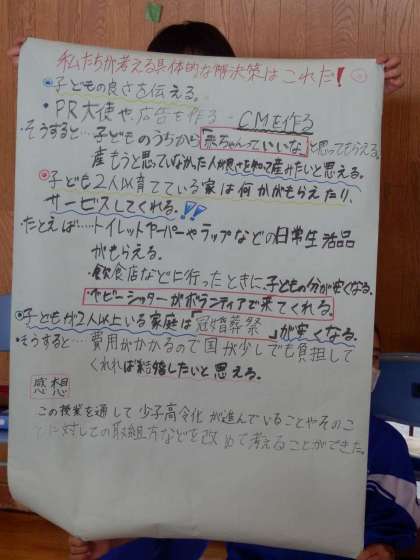 私たちが考える具体的な解決策はこれだ!
・子どもの良さを伝える。
・PR大使や広告を作る→CMを作る
・そうすると…子どものうちから「赤ちゃんっていいな」と思ってもらえる。
産もうと思っていなかった人が良さを知って産みたいと思える。
・子ども2人以上育てている家は何かがもらえたり、
サービスしてくれる。!!
・たとえば……トイレットペーパーやラップなどの日常生活品
がもらえる。
・飲食店などに行ったときに、子どもの分が安くなる。
・ベビーシッターがボランティアで来てくれる。
・子どもが2人以上いる家庭は「冠婚葬祭」が安くなる。
・そうすると…費用がかかるので国が少しでも負担して
くれれば結婚したいと思える。
感想
この授業を通して少子高令化が進んでいることやそのこ
とに対しての取組方などを改めて考えることができた。